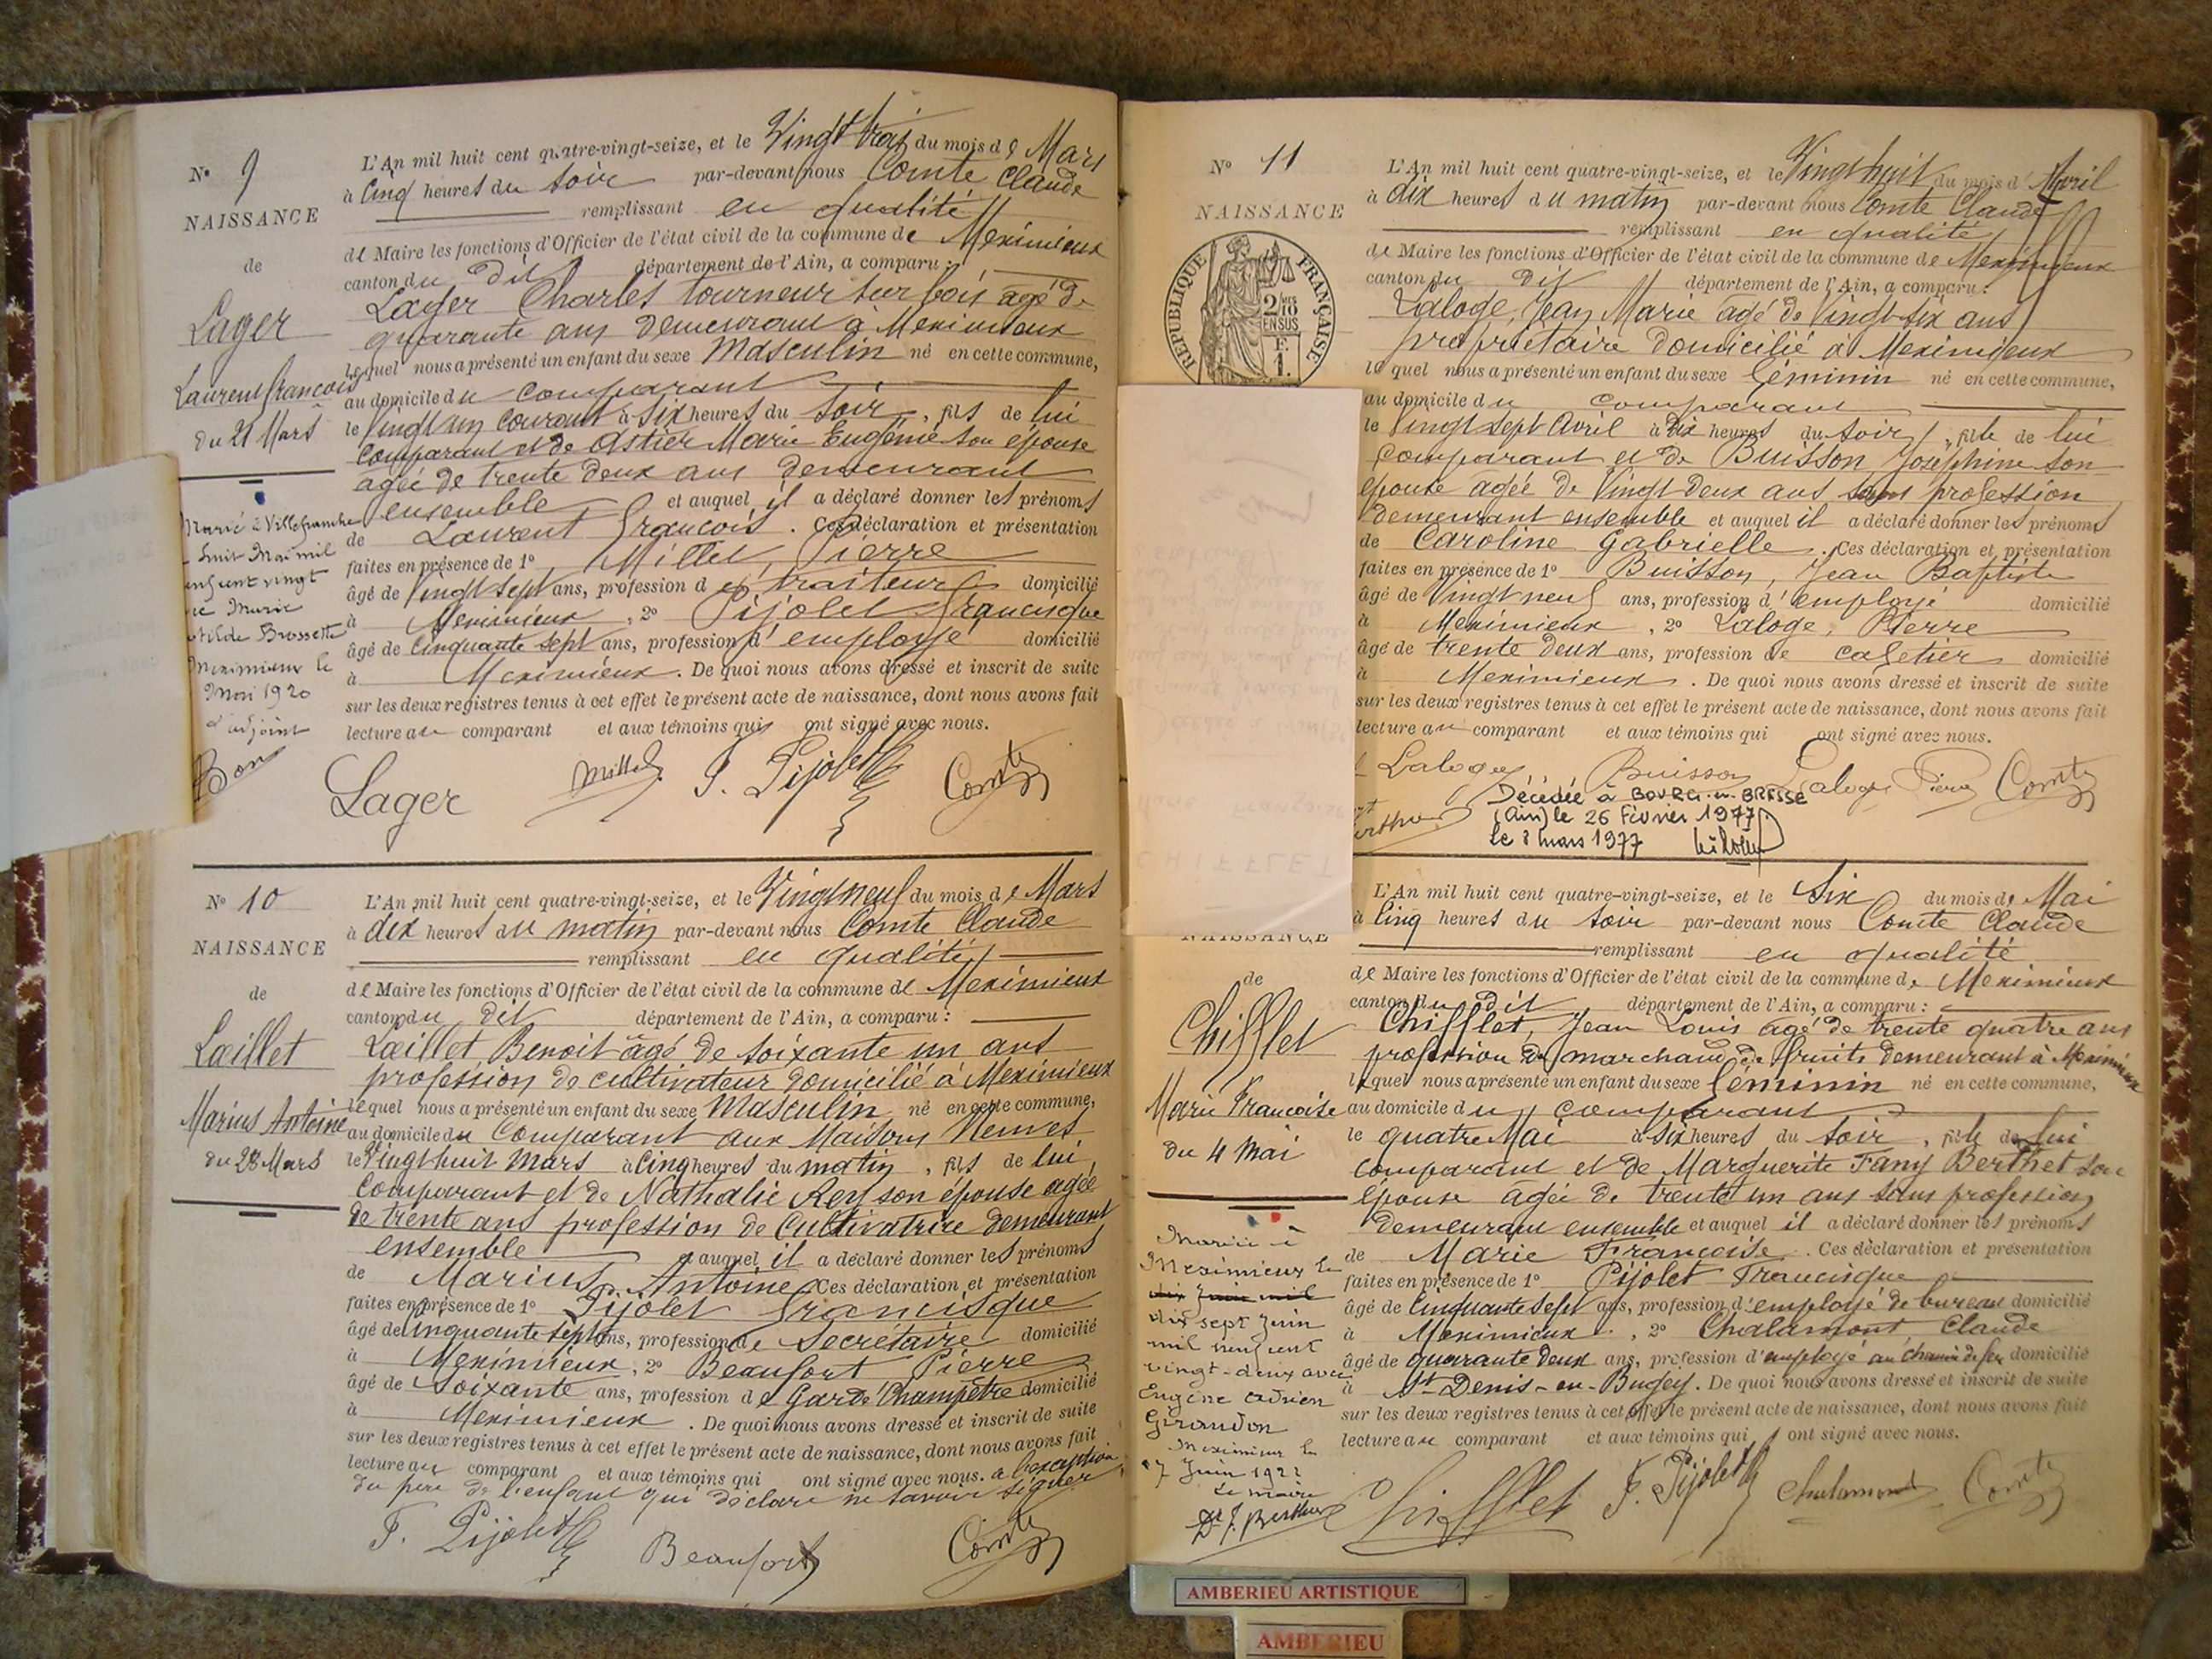 N° 9
NAISSANCE
de
Lager
Laurent François
du 21 Mars
Marié à Villefranche
huit Mai mil
cent vingt
Marie
Brossette
Meximieux le
Mai 1920
adjoint
Bon
L'An mil huit cent quatre-vingt-seize, et le Vingt trois du mois de Mars
à Cinq heures du soir par-devant nous Comte Claude
remplissant en qualité
de Maire les fonctions d'Officier de l'état civil de la commune de Meximieux
canton du dit département de l'Ain, a comparu :
Lager Charles tourneur sur bois âgé de
quarante ans demeurant à Meximieux
lequel nous a présenté un enfant du sexe Masculin né en cette commune,
au domicile du comparant
le Vingt un courant à six heures du soir, fils de lui
comparant et de Astier Marie Eugénie son épouse
agée de trente deux ans demeurant
ensemble et auquel il a déclaré donner les prénoms
de Laurent François. Ces déclaration et présentation
faites en présence de 1° Millet, Pierre
âgé de Vingt sept ans, profession de traiteur domicilié
à Meximieux, 2° Pijolet Francisque
âgé de Cinquante sept ans, profession d'employé domicilié
à Meximieux. De quoi nous avons dressé et inscrit de suite
sur les deux registres tenus à cet effet le présent acte de naissance, dont nous avons fait
lecture au comparant et aux témoins qui ont signé avec nous.
Lager Millet F. Pijolet Comte
N° 10
NAISSANCE
de
Lœillet
Marius Antoine
du 28 Mars
L'An mil huit cent quatre-vingt-seize, et le Vingt neuf du mois de Mars
à dix heures du matin par-devant nous Comte Claude
remplissant en qualité
de Maire les fonctions d'Officier de l'état civil de la commune de Meximieux
canton du dit département de l'Ain, a comparu :
Lœillet Benoit âgé de soixante un ans
profession de cultivateur domicilié à Meximieux
lequel nous a présenté un enfant du sexe Masculin né en cette commune,
au domicile du Comparant aux Maisons Neuves
le Vingt huit Mars à Cinq heures du matin, fils de lui
Comparant et de Nathalie Rey son épouse agée
de trente ans profession de Cultivatrice demeurant
ensemble auquel il a déclaré donner les prénoms
de Marius, Antoine Ces déclaration et présentation
faites en présence de 1° Pijolet Francisque
âgé de cinquante sept ans, profession de Secrétaire domicilié
à Meximieux, 2° Beaufort Pierre
âgé de Soixante ans, profession de Garde Champêtre domicilié
à Meximieux. De quoi nous avons dressé et inscrit de suite
sur les deux registres tenus à cet effet le présent acte de naissance, dont nous avons fait
lecture au comparant et aux témoins qui ont signé avec nous. a l'exception
du père de l'enfant qui déclare ne savoir signer
F. Pijolet Beaufort Comte
N° 11
NAISSANCE
RÉPUBLIQUE FRANÇAISE
2/10
EN SUS
F.
1.
L'An mil huit cent quatre-vingt-seize, et le Vingt huit du mois d'Avril
à dix heures du matin par-devant nous Comte Claude
remplissant en qualité
de Maire les fonctions d'Officier de l'état civil de la commune de Meximieux
canton du dit département de l'Ain, a comparu :
Laloge, Jean Marie agé de Vingt six ans
propriétaire domicilié à Meximieux
lequel nous a présenté un enfant du sexe féminin né en cette commune,
au domicile du comparant
le Vingt sept Avril à Dix heures du soir, fille de lui
comparant et de Buisson, Joséphine son
épouse agée de Vingt Deux ans sans profession
demeurant ensemble et auquel il a déclaré donner les prénoms
de Caroline Gabrielle. Ces déclaration et présentation
faites en présence de 1° Buisson, Jean Baptiste
âgé de Vingt neuf ans, profession d'employé domicilié
à Meximieux, 2° Laloge, Pierre
âgé de trente deux ans, profession de cafetier domicilié
à Meximieux. De quoi nous avons dressé et inscrit de suite
sur les deux registres tenus à cet effet le présent acte de naissance, dont nous avons fait
lecture au comparant et aux témoins qui ont signé avec nous.
Laloge Buisson Laloge Pierre Comte
Décédée à BOURG-en-BRESSE
(Ain) le 26 Février 1977
le 8 mars 1977
NAISSANCE
de
Chifflet
Marie Françoise
du 4 Mai
Mariée à
Meximieux le
dix Juin mil
dix sept Juin
mil neuf cent
vingt-deux avec
Eugène Adrien
Girandon
Meximieux le
17 Juin 1922
Le maire
Dr J. Berthier
L'An mil huit cent quatre-vingt-seize, et le Six du mois de Mai
à Cinq heures du soir par-devant nous Comte Claude
remplissant en qualité
de Maire les fonctions d'Officier de l'état civil de la commune de Meximieux
canton du dit département de l'Ain, a comparu :
Chifflet, Jean Louis agé de trente quatre ans
profession de marchand de fruits demeurant à Meximieux
lequel nous a présenté un enfant du sexe féminin né en cette commune,
au domicile du comparant
le quatre Mai à six heures du soir, fille de lui
comparant et de Marguerite Fany Berthet son
épouse agée de trente un ans sans profession
demeurant ensemble et auquel il a déclaré donner les prénoms
de Marie Françoise. Ces déclaration et présentation
faites en présence de 1° Pijolet Francisque
âgé de Cinquante sept ans, profession d'employé de bureau domicilié
à Meximieux, 2° Chalamont, Claude
âgé de quarante deux ans, profession d'employé au chemin de fer domicilié
à St Denis-en-Bugey. De quoi nous avons dressé et inscrit de suite
sur les deux registres tenus à cet effet le présent acte de naissance, dont nous avons fait
lecture au comparant et aux témoins qui ont signé avec nous.
Chifflet F. Pijolet Chalamont Comte
AMBERIEU ARTISTIQUE
AMBERIEU